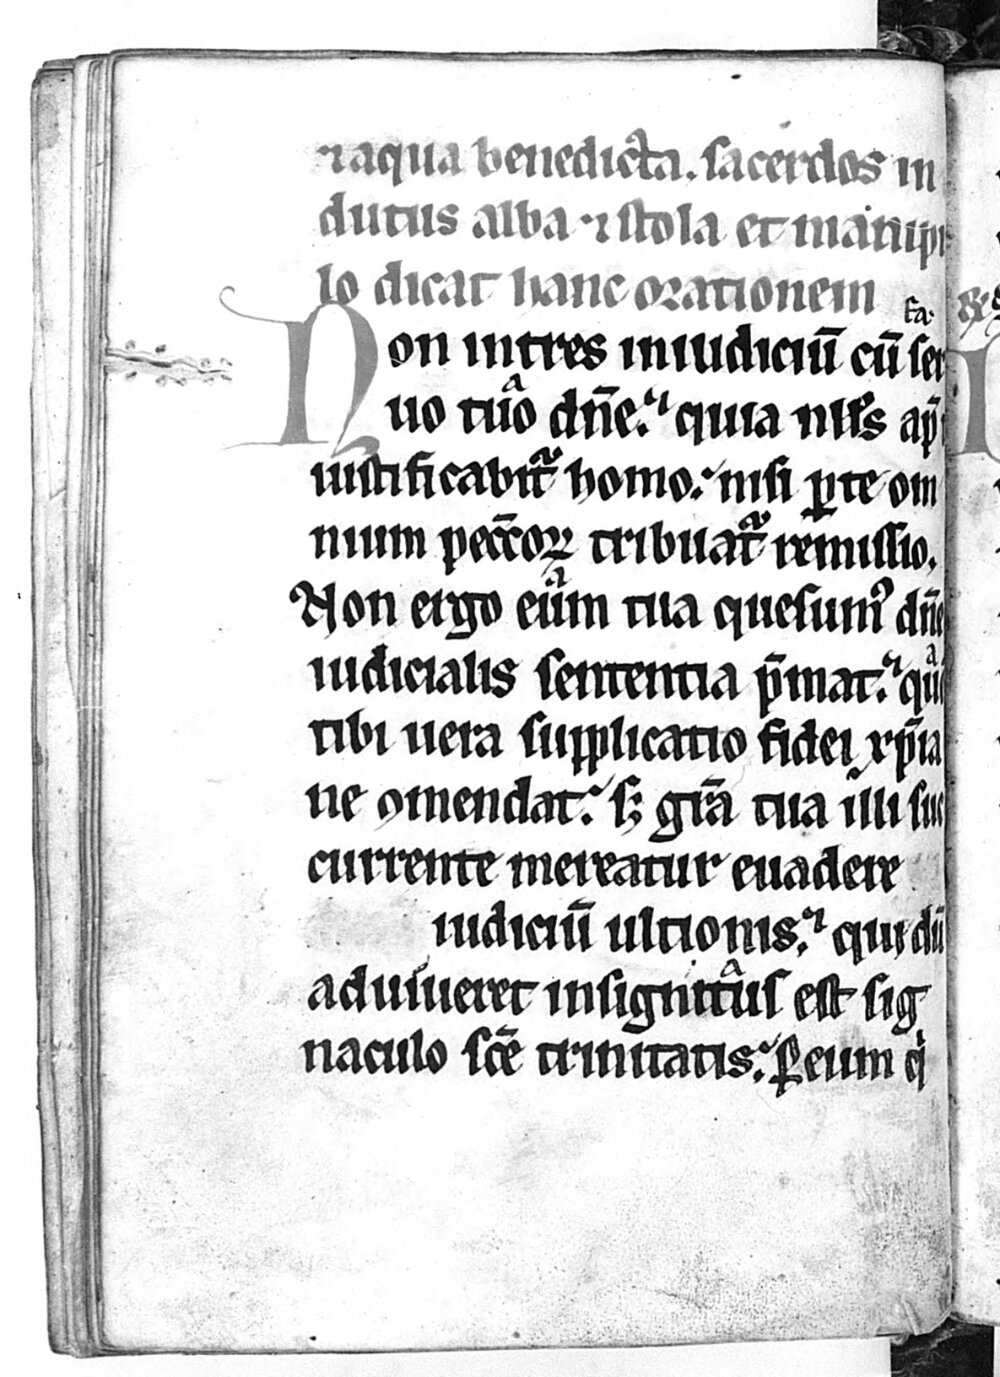 ⁊ aqua benedicta. sacerdos in
dutus alba ⁊ stola et manipu
lo dicat hanc orationem
Non intres in iudiciū cū ser
uo tuo dn̄e. quia nłłs ap̄
iustificabit᷑ homo. nisi ꝑ te om
nium pecc̄oꝝ tribuat᷑ remissio.
Non ergo eum tua quesumꝰ dn̄e
iudicialis sententia p̄mat. quē
tibi uera supplicatio fidei xp̄ia
ne ꝯmendat. sꝫ gr̄a tua illi suc
currente mereatur euadere
iudiciū ultionis. qui dū
aduiueret insignitus est sig
naculo sc̄e trinitatis. Ꝑ eum q̇